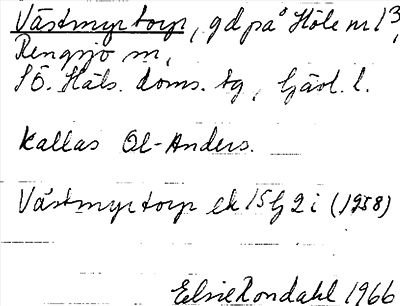 Västmyrtorp, gd på Höle nr 13,
Rengsjö sn,
SÖ. Häls. doms. tg, Gävl. l.
Kallas Ol-Anders.
Västmyrtorp ek 15G2i (1958)
Elsie Rondahl 1966